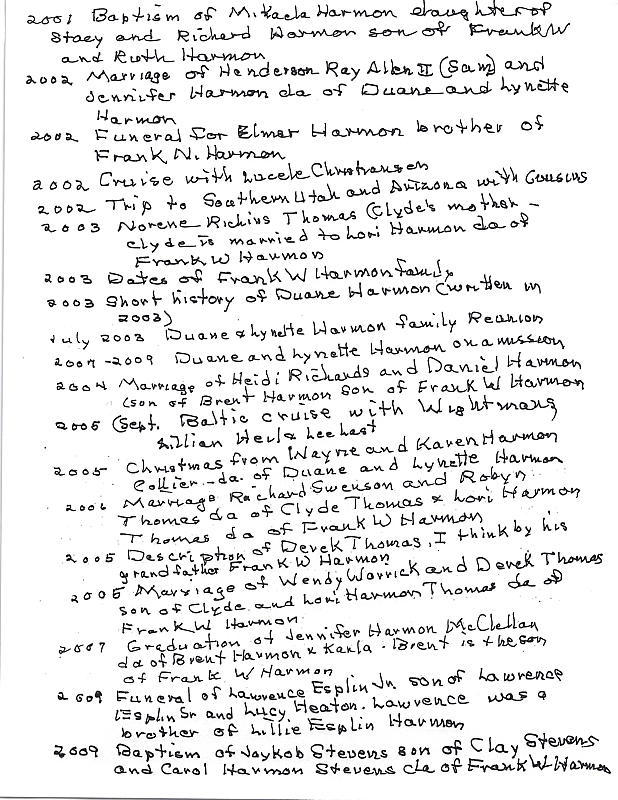 2001 Baptism of Mikaela Harmon daughter of
Stacy and Richard Harmon son of Frank W
and Ruth Harmon
2002 Marriage of Henderson Ray Allen II (Sam) and
Jennifer Harmon da of Duane and Lynette
Harmon
2002 Funeral for Elmer Harmon brother of
Frank N. Harmon
2002 Cruise with Lucele Christiansen
2002 Trip to Southern Utah and Arizona with Cousins
2003 Norene Richins Thomas (Clyde's mother -
Clyde is married to Lori Harmon da of
Frank W Harmon
2003 Dates of Frank W Harmon family
2003 Short history of Duane Harmon (written in
2003)
July 2003 Duane & Lynette Harmon family Reunion
2007 - 2009 Duane and Lynette Harmon on a mission
2004 Marriage of Heidi Richards and Daniel Harmon
(son of Brent Harmon son of Frank W Harmon
2005 (Sept. Baltic cruise with Wightmans
Lillian
2005 Christmas from Wayne and Karen Harmon
Collier - da. of Duane and Lynette Harmon
2006 Marriage Richard Swenson and Robyn
Thomas da of Clyde Thomas & Lori Harmon
Thomas da of Frank W Harmon
2005 Description of Derek Thomas, I think by his
grandfather Frank W Harmon
2005 Marriage of Wendy Warrick and Derek Thomas
son of Clyde and Lori Harmon Thomas da of
Frank W Harmon
2007 Graduation of Jennifer Harmon McClellan
da of Brent Harmon & Karla. Brent is the son
of Frank W Harmon
2009 Funeral of Lawrence Esplin Jr. son of Lawrence
Esplin Sr and Lucy Heaton. Lawrence was a
brother of Lillie Esplin Harmon
2009 Baptism of Jaykob Stevens son of Clay Stevens
and Carol Harmon Stevens da of Frank W Harmon